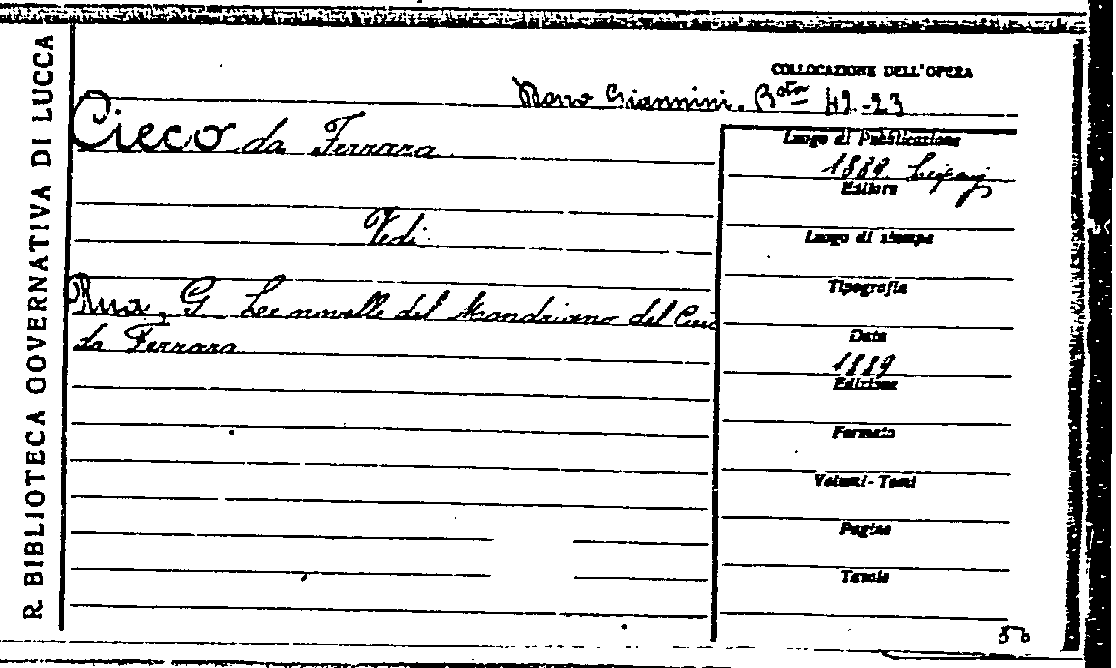 R. BIBLIOTECA GOVERNATIVA DI LUCCA
COLLOCAZIONE DELL'OPERA
Giannini. B.sta 42.-23
Cieco da Ferrara
Luogo di Pubblicazione
1889. Lipsia
Editore
Vedi
Luogo di stampa
Rua, G. Le novelle del Mambriano del Cieco
Tipografia
da Ferrara
Data
1889
Edizione
Formato
Volumi-Tomi
Pagine
Tavole